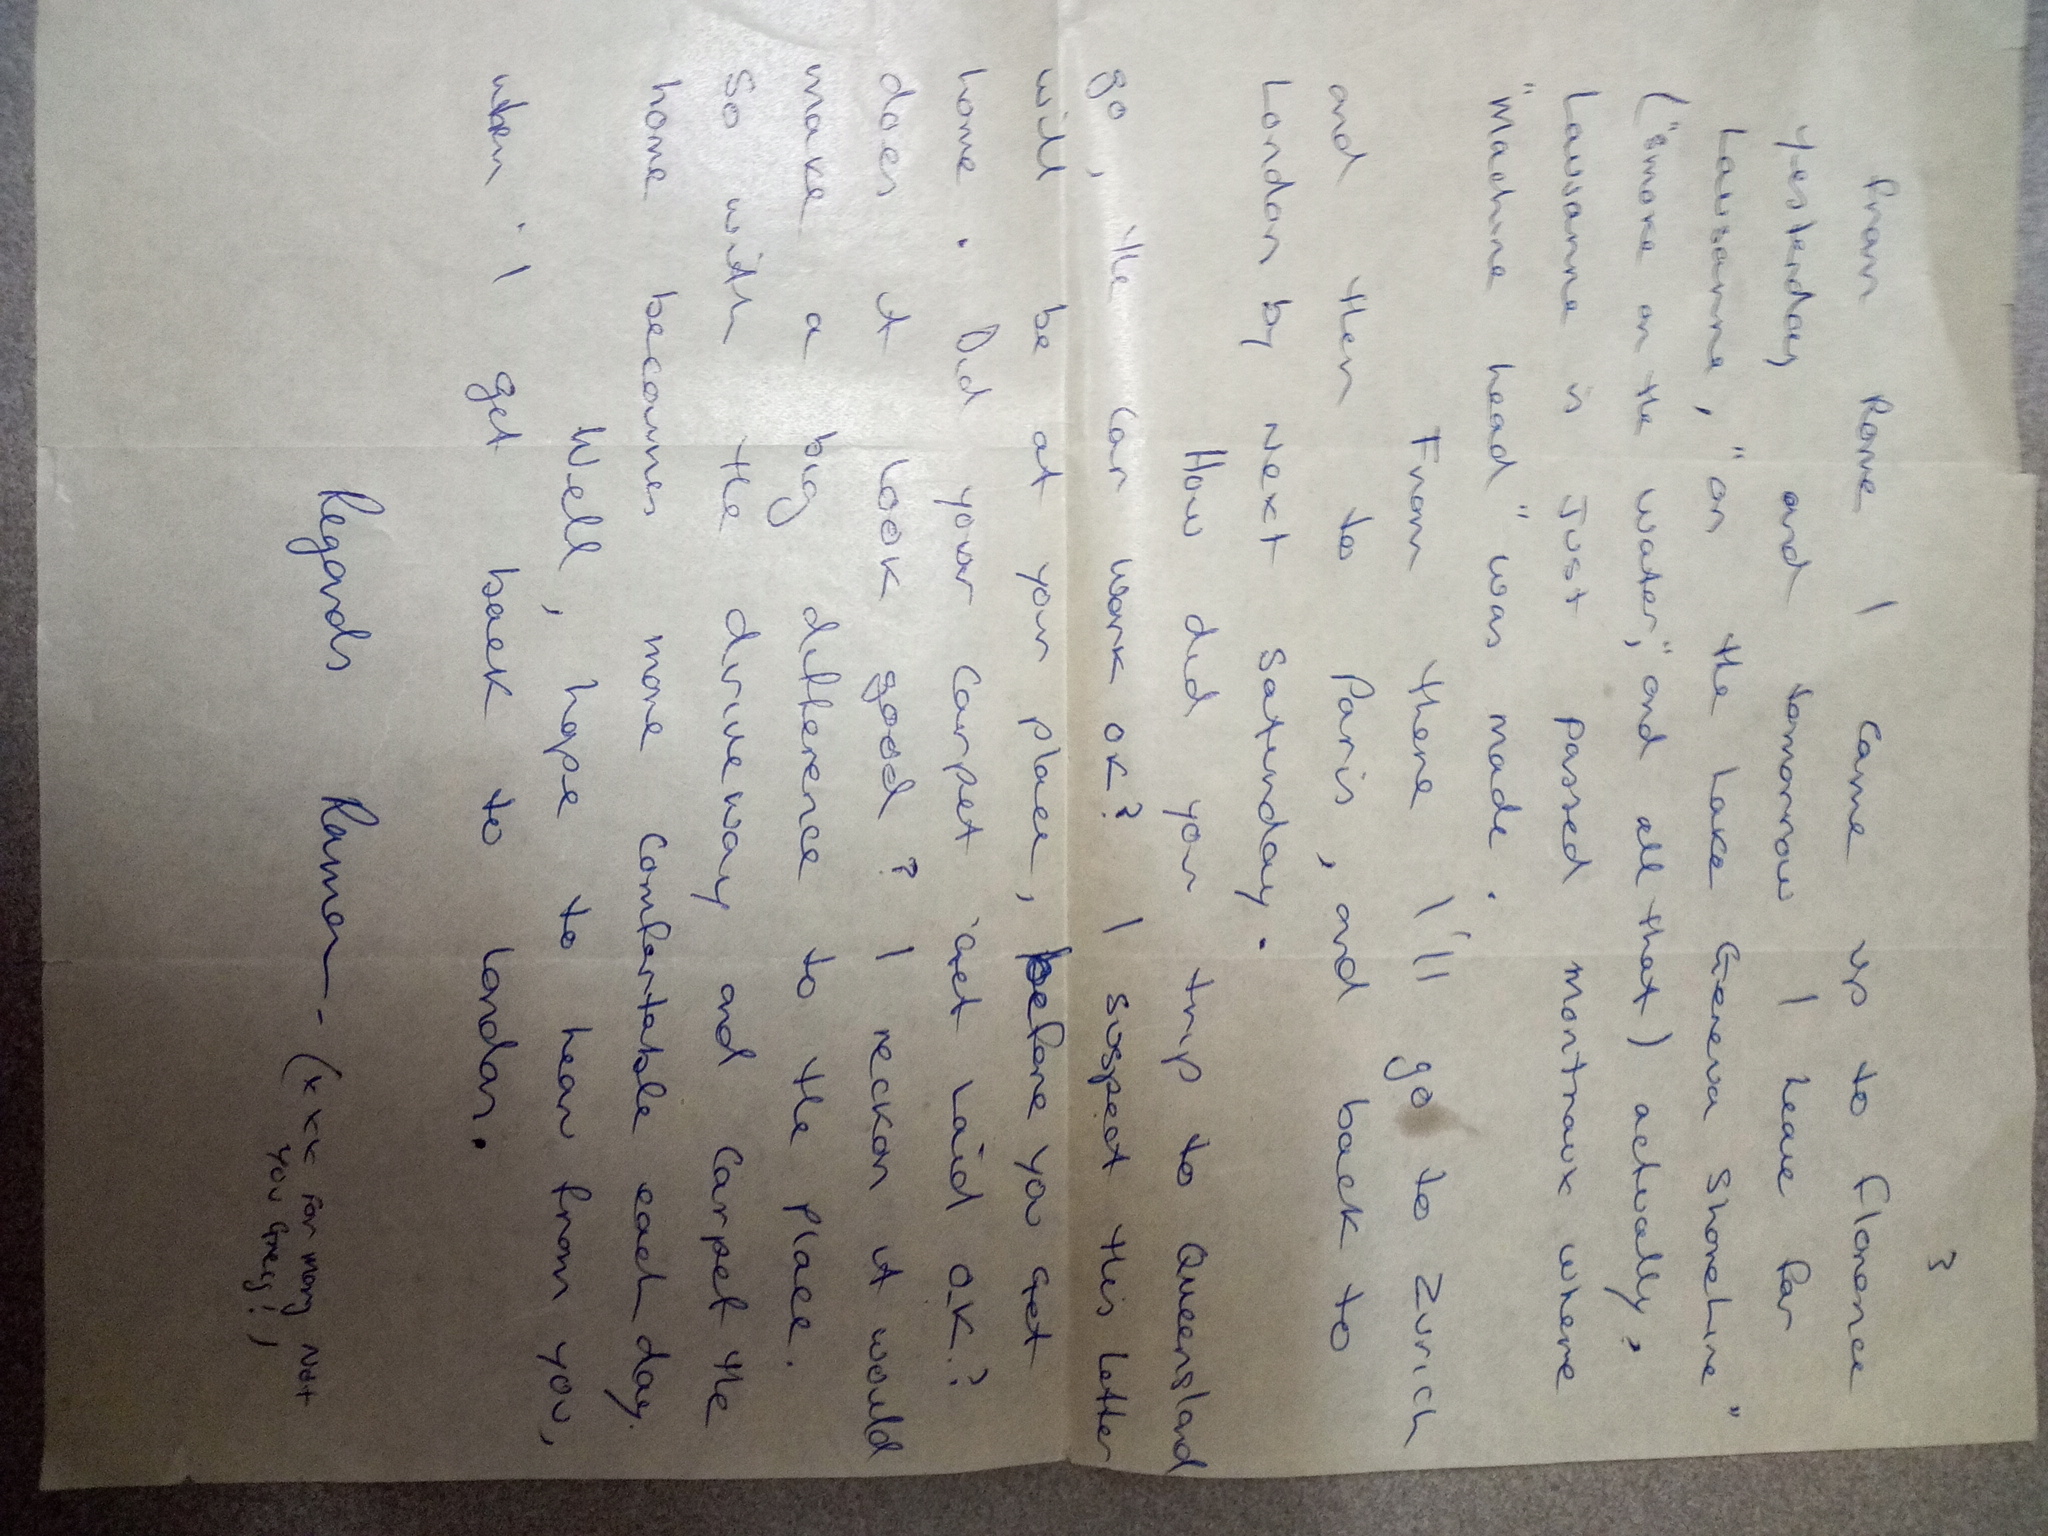 3
From Rome I came up to Florence
yesterday and tomorrow I leave for
Lausanne, "on the Lake Geneva Shoreline"
("smoke on the water," and all that) actually,
Lausanne is Just passed montraux where
"Machine head" was made.
From there I'll go to Zurich
and then to Paris, and back to
London by next Saturday.
How did your trip to Queensland
go, the car work ok? I suspect this letter
will be at your place, before you get
home. Did your carpet get laid OK.?
does it look good? I reckon it would
make a big difference to the place.
So with the driveway and carpet the
home becomes more comfortable each day.
Well, hope to hear from you,
when I get back to London.
Regards
(xxx for mary not
you Greg!)